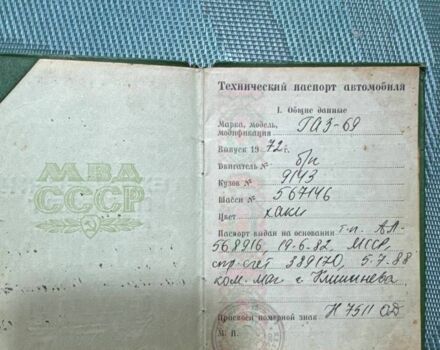 МВД
СССР
Технический паспорт автомобиля
I. Общие данные
Марка, модель,
модификация ГАЗ-69
Выпуск 1972 г.
Двигатель № б/н
Кузов № 9143
Шасси № 567146
Цвет хаки
Паспорт выдан на основании т.п. АЛ-
568916, 19.6.82, МССР,
спр. счет 389170, 5.7.88
ком. маг. г. Кишинева
Присвоен номерной знак Н 7511 ОД
М. П.